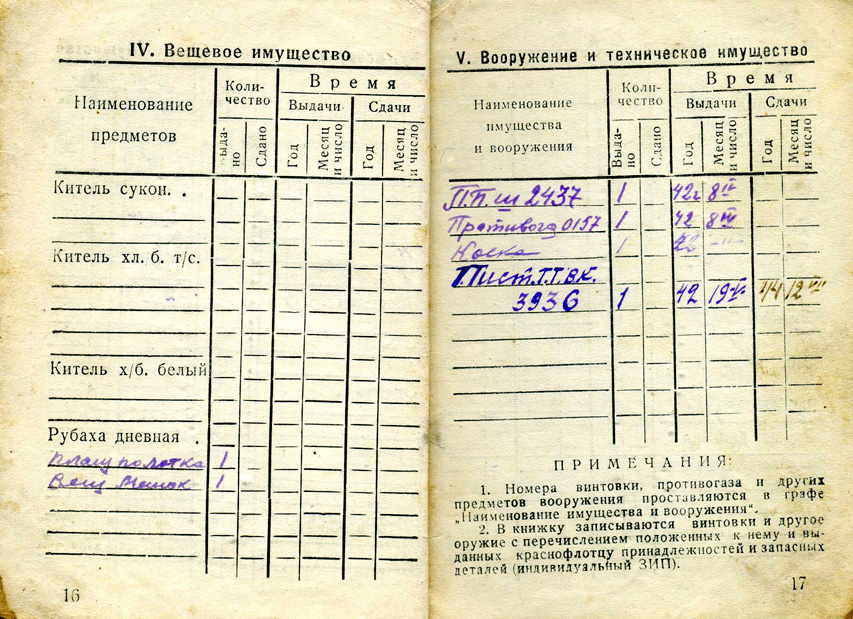 IV. Вещевое имущество
Наименование
предметов
Коли-
чество
Время
Выдачи
Сдачи
Выда-
но
Сдано
Год
Месяц
и число
Год
Месяц
и число
Китель сукон. .
Китель хл. б. т/с.
Китель х/б. белый
Рубаха дневная .
плащ полотка 1
Вещ мешок 1
16
V. Вооружение и техническое имущество
Наименование
имущества
и вооружения
Коли-
чество
Время
Выдачи
Сдачи
Выда-
но
Сдано
Год
Месяц
и число
Год
Месяц
и число
П.П.Ш 2437 1 42г 8
Противогаз 0157 1 42 8
Каска 1
Пист.Т.Т. В.К.
3936 1 42 19 44 12
ПРИМЕЧАНИЯ:
1. Номера винтовки, противогаза и других
предметов вооружения проставляются в графе
„Наименование имущества и вооружения".
2. В книжку записываются винтовки и другое
оружие с перечислением положенных к нему и вы-
данных краснофлотцу принадлежностей и запасных
деталей (индивидуальный ЗИП).
17